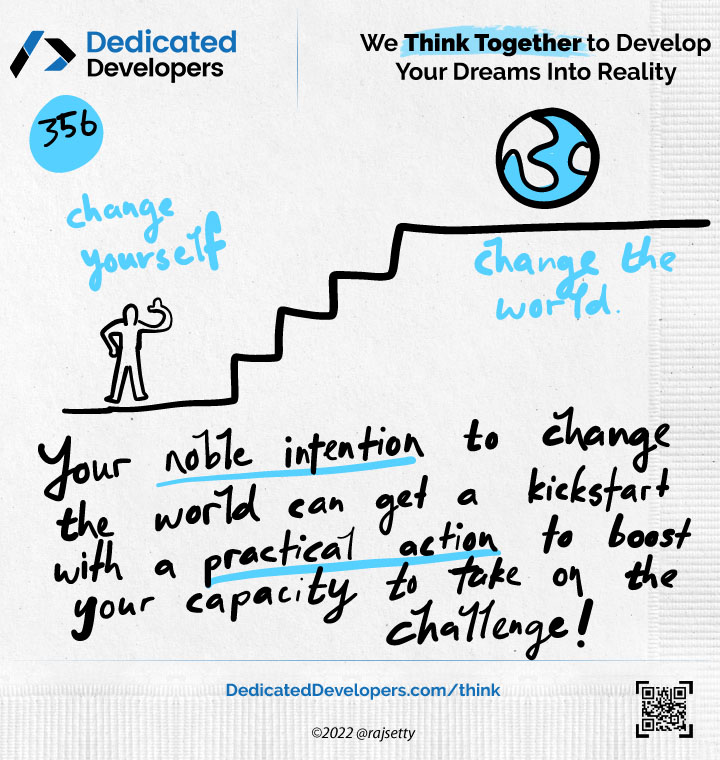 Dedicated
Developers
We Think Together to Develop
Your Dreams Into Reality
356
change
yourself
change the
world.
Your noble intention to change
the world can get a kickstart
with a practical action to boost
your capacity to take on the
challenge!
DedicatedDevelopers.com/think
©2022 @rajsetty